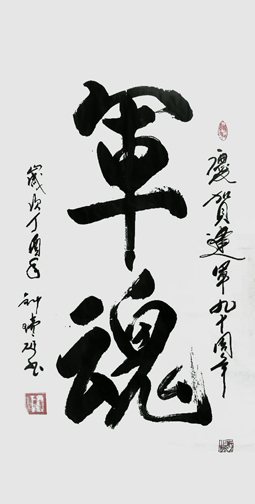 慶賀建軍九十周年
軍魂
歲次丁酉年